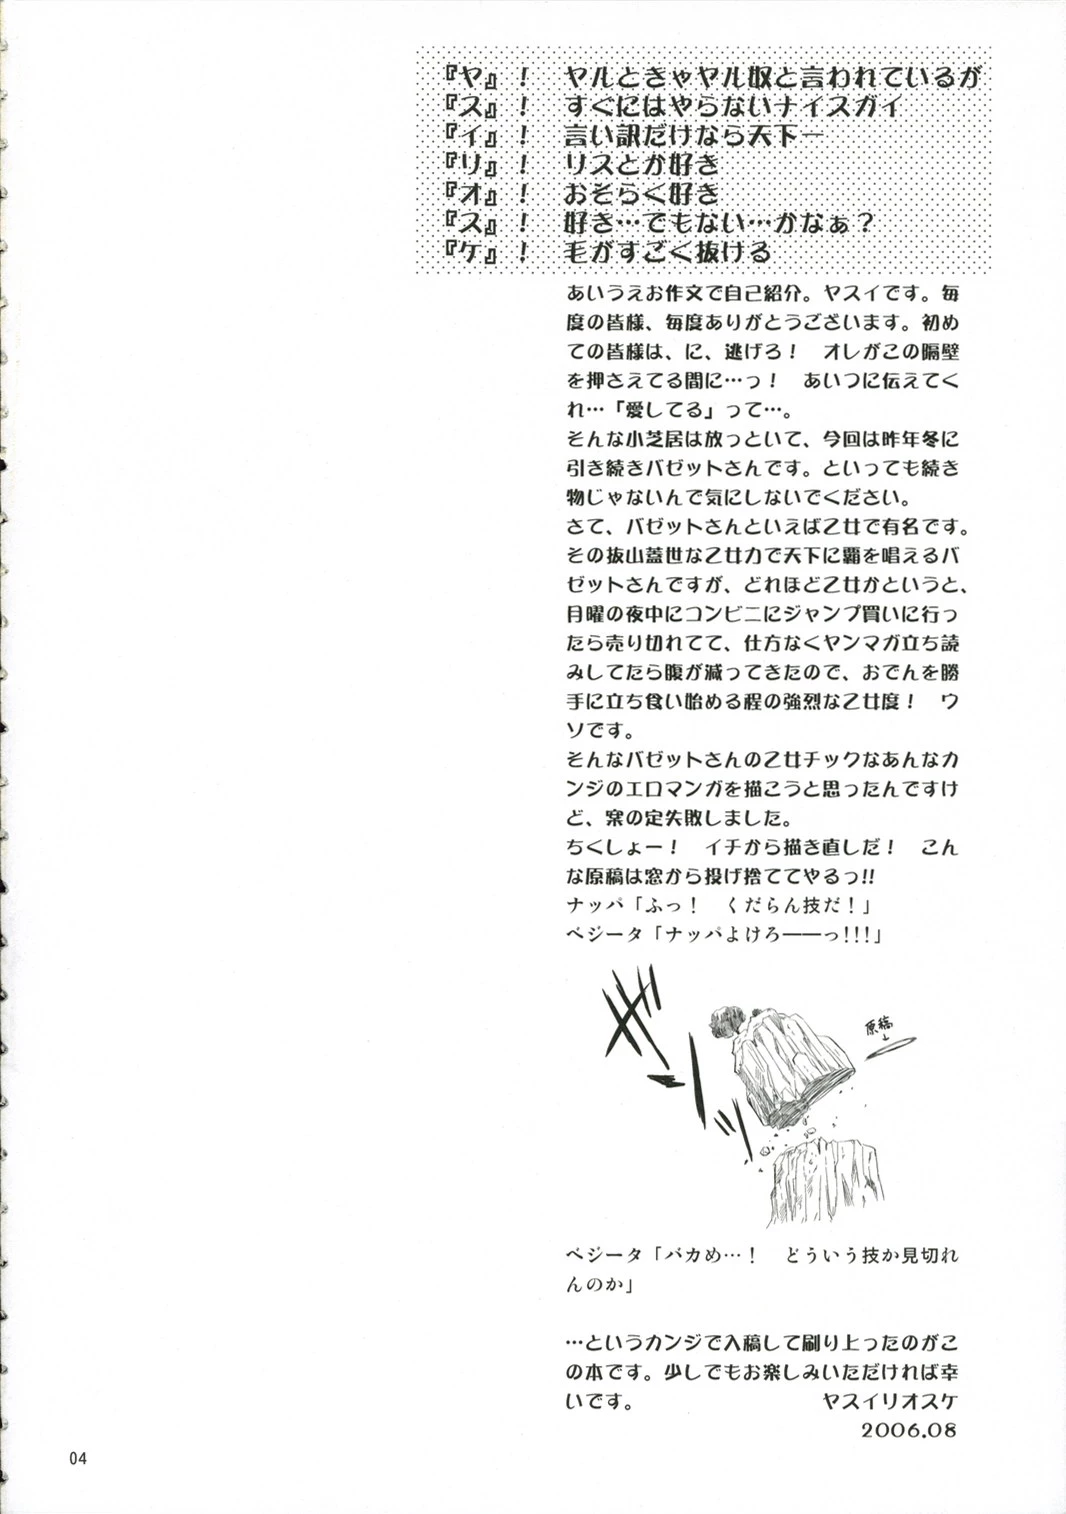 『ヤ』！　ヤルときゃヤル奴と言われているが
『ス』！　すぐにはやらないナイスガイ
『イ』！　言い訳だけなら天下一
『リ』！　リスとか好き
『オ』！　おそらく好き
『ス』！　好き…でもない…かなぁ？
『ケ』！　毛がすごく抜ける
あいうえお作文で自己紹介。ヤスイです。毎
度の皆様、毎度ありがとうございます。初め
ての皆様は、に、逃げろ！　オレがこの隔壁
を押さえてる間に…っ！　あいつに伝えてく
れ…「愛してる」って…。
そんな小芝居は放っといて、今回は昨年冬に
引き続きバゼットさんです。といっても続き
物じゃないんで気にしないでください。
さて、バゼットさんといえば乙女で有名です。
その抜山蓋世な乙女力で天下に覇を唱えるバ
ゼットさんですが、どれほど乙女かというと、
月曜の夜中にコンビニにジャンプ買いに行っ
たら売り切れてて、仕方なくヤンマガ立ち読
みしてたら腹が減ってきたので、おでんを勝
手に立ち食い始める程の強烈な乙女度！　ウ
ソです。
そんなバゼットさんの乙女チックなあんなカ
ンジのエロマンガを描こうと思ったんですけ
ど、案の定失敗しました。
ちくしょー！　イチから描き直しだ！　こん
な原稿は窓から投げ捨ててやるっ!!
ナッパ「ふっ！　くだらん技だ！」
ベジータ「ナッパよけろ――っ!!!」
ズズッ
原稿
ベジータ「バカめ…！　どういう技か見切れ
んのか」
…というカンジで入稿して刷り上ったのがこ
の本です。少しでもお楽しみいただければ幸
いです。　ヤスイリオスケ
2006.08
04